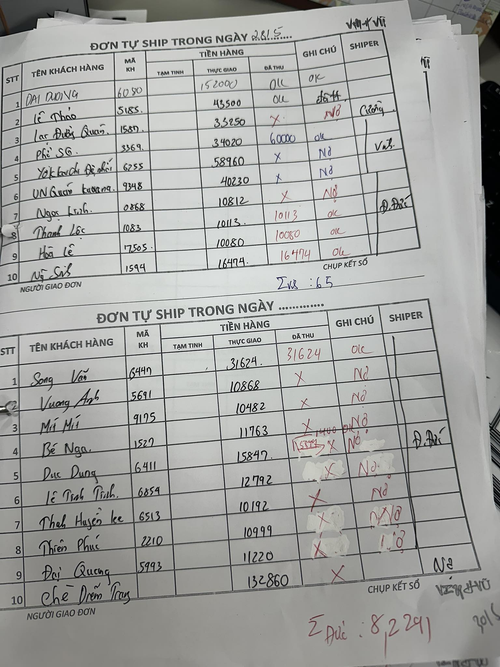 ĐƠN TỰ SHIP TRONG NGÀY 28/5
STT TÊN KHÁCH HÀNG MÃ KH TIỀN HÀNG GHI CHÚ SHIPER
TẠM TÍNH THỰC GIAO ĐÃ THU
1 ĐẠI DƯƠNG 6080 152000 OK OK
2 Lê Thảo 5185 43500 OK
3 1589 33250 X Nợ Cường
4 Phi SG 3369 34020 60000 OK
5 6755 58960 X Nợ
6 9348 40230 X Nợ
7 Ngọc Linh 0868 10812 X Nợ
8 Thanh Lộc 1083 10113 10113 OK Đ.Đức
9 Hoa Lê 17505 10080 10080 OK
10 1594 16474 16474 OK
NGƯỜI GIAO ĐƠN CHỤP KẾT SỔ
: 65
ĐƠN TỰ SHIP TRONG NGÀY .............
STT TÊN KHÁCH HÀNG MÃ KH TIỀN HÀNG GHI CHÚ SHIPER
TẠM TÍNH THỰC GIAO ĐÃ THU
1 Song Vân 6447 31624 31624 OK
2 Vương Anh 5691 10868 X Nợ
3 Mú Mú 9175 10482 X Nợ
4 Bé Nga 1527 11763 X Nợ
5 Duc Dung 6411 15847 X Nợ Đ.Đức
6 Lê Trinh Trinh 6854 12792 X Nợ
7 Thanh Huyền Lee 6513 10192 X Nợ
8 Thiên Phúc 2210 10999 X Nợ
9 Đại Quang 5993 11220 X Nợ
10 Chè Diễm Trang 132860 X Nợ
NGƯỜI GIAO ĐƠN CHỤP KẾT SỔ
Σ Đức : 8,2291